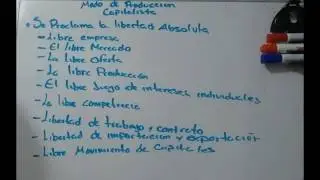 Modo de Produccion
Capitalista
• Se Proclama la libertad Absoluta
- Libre empresa
- El libre Mercado
- La libre Oferta
- La libre Producción
- El libre Juego de intereses individuales
- La libre competencia
- Libertad de trabajo y contrato
- Libertad de importación y exportación
- Libre Movimiento de Capitales